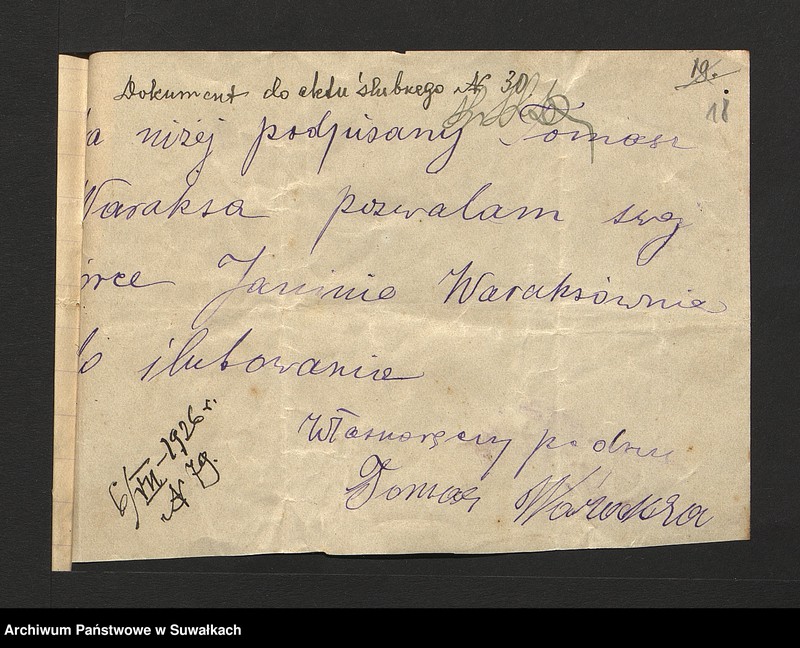 19.
18
Dokument do aktu ślubnego № 30
niżej podpisany Tomasz
Waraksa pozwalam swej
órce Janinie Waraksównie
do ilubowanie
Własnoręczny podpis
Tomasz Waraksa
6/VII-1926 r.
№ 79.
Archiwum Państwowe w Suwałkach